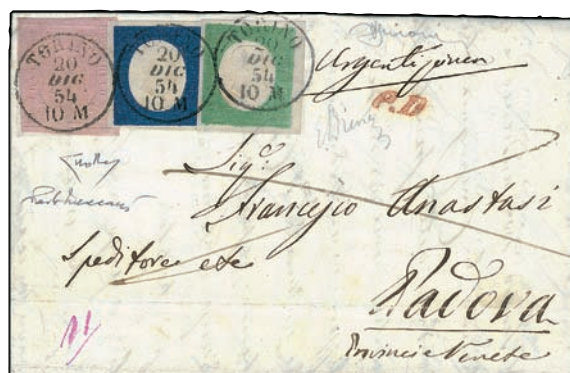 TORINO
20
DIC
54
10 M
TORINO
20
DIC
54
10 M
TORINO
20
DIC
54
10 M
P.D.
Sig.r
Francesco Anastasi
Speditore etc
Padova
Provincie Venete